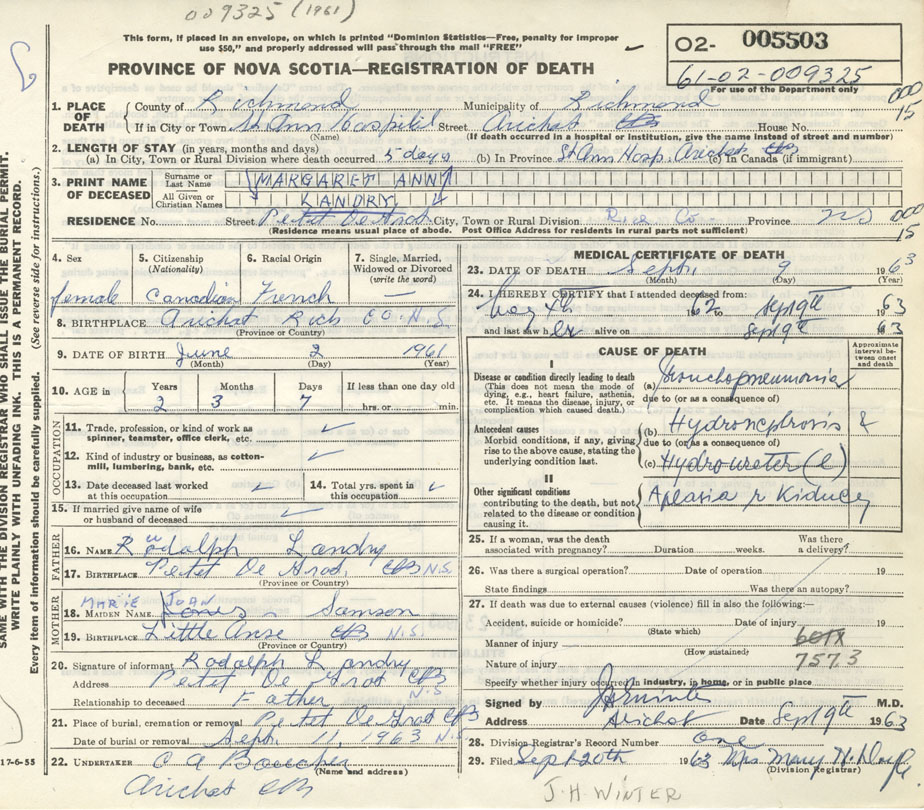 009325 (1961)
This form, if placed in an envelope, on which is printed "Dominion Statistics—Free, penalty for improper
use $50," and properly addressed will pass through the mail "FREE"
PROVINCE OF NOVA SCOTIA—REGISTRATION OF DEATH
02- 005503
61-02-009325
For use of the Department only
000
15
1. PLACE OF DEATH
County of Richmond Municipality of Richmond
If in City or Town St Ann Hospital Street Arichat CB House No.
(Name) (If death occurred in a hospital or institution, give the name instead of street and number)
2. LENGTH OF STAY (in years, months and days)
(a) In City, Town or Rural Division where death occurred 5 days (b) In Province St Ann Hosp. Arichat CB (c) In Canada (if immigrant)
3. PRINT NAME OF DECEASED
Surname or Last Name MARGARET ANN
All Given or Christian Names LANDRY
RESIDENCE No. Street Petit De Grat City, Town or Rural Division Rich Co- Province NS
(Residence means usual place of abode. Post Office Address for residents in rural parts not sufficient)
000
15
4. Sex
female
5. Citizenship
(Nationality)
Canadian
6. Racial Origin
French
7. Single, Married,
Widowed or Divorced
(write the word)
—
8. BIRTHPLACE Arichat Rich CO. N.S
(Province or Country)
9. DATE OF BIRTH June 2 1961
(Month) (Day) (Year)
10. AGE in
Years Months Days If less than one day old
2 3 7 hrs. or min.
OCCUPATION
11. Trade, profession, or kind of work as
spinner, teamster, office clerk, etc.
12. Kind of industry or business, as cotton-
mill, lumbering, bank, etc.
13. Date deceased last worked
at this occupation
14. Total yrs. spent in
this occupation
15. If married give name of wife
or husband of deceased
FATHER
16. NAME Rudolph Landry
17. BIRTHPLACE Petit De Grat CB N.S.
(Province or Country)
MOTHER
MARIE JOAN
18. MAIDEN NAME Samson
19. BIRTHPLACE Little Anse CB N.S.
(Province or Country)
20. Signature of informant Rodolph Landry
Address Petit De Grat CB N.S
Relationship to deceased Father
21. Place of burial, cremation or removal Petit De Grat CB
Date of burial or removal Sept. 11, 1963 N.S
22. UNDERTAKER C A Boucher
(Name and address)
Arichat CB
MEDICAL CERTIFICATE OF DEATH
23. DATE OF DEATH Sept. 9 1963
(Month) (Day) (Year)
24. I HEREBY CERTIFY that I attended deceased from:
1962 to Sept 9th 63
and last saw her alive on Sept 9th 63
CAUSE OF DEATH
Approximate interval between onset and death
I
Disease or condition directly leading to death
(This does not mean the mode of
dying, e.g., heart failure, asthenia,
etc. It means the disease, injury, or
complication which caused death.)
(a) Bronchopneumonia
due to (or as a consequence of)
Antecedent causes
Morbid conditions, if any, giving
rise to the above cause, stating the
underlying condition last.
(b) Hydronephrosis &
due to (or as a consequence of)
(c) Hydroureter (l)
II
Other significant conditions
contributing to the death, but not
related to the disease or condition
causing it.
Aplasia r Kidney
25. If a woman, was the death
associated with pregnancy? Duration weeks. Was there
a delivery?
26. Was there a surgical operation? Date of operation 19
State findings Was there an autopsy?
27. If death was due to external causes (violence) fill in also the following:—
Accident, suicide or homicide? Date of injury 19
(State which)
Manner of injury
(How sustained)
Nature of injury
757.3
Specify whether injury occurred in industry, in home, or in public place
Signed by M.D.
Address Arichat Date Sept 9th 1963
28. Division Registrar's Record Number One
29. Filed Sept 20th 1963 Mrs Mary H. Doyle
(Division Registrar)
J.H. WINTER
SAME WITH THE DIVISION REGISTRAR WHO SHALL ISSUE THE BURIAL PERMIT.
WRITE PLAINLY WITH UNFADING INK. THIS IS A PERMANENT RECORD.
Every item of information should be carefully supplied. (See reverse side for instructions.)
17-6-55